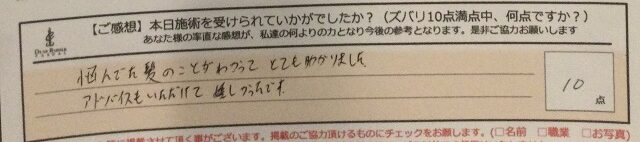 【ご感想】本日施術を受けられていかがでしたか？（ズバリ10点満点中、何点ですか？）
あなた様の率直な感想が、私達の何よりの力となり今後の参考となります。是非ご協力お願いします
悩んでた髪のことがわかって とても助かりました
アドバイスもいただけて 嬉しかったです
10
点
に掲載させて頂く事がございます。掲載のご協力頂けるものにチェックをお願します。(□名前 □職業 □お写真)